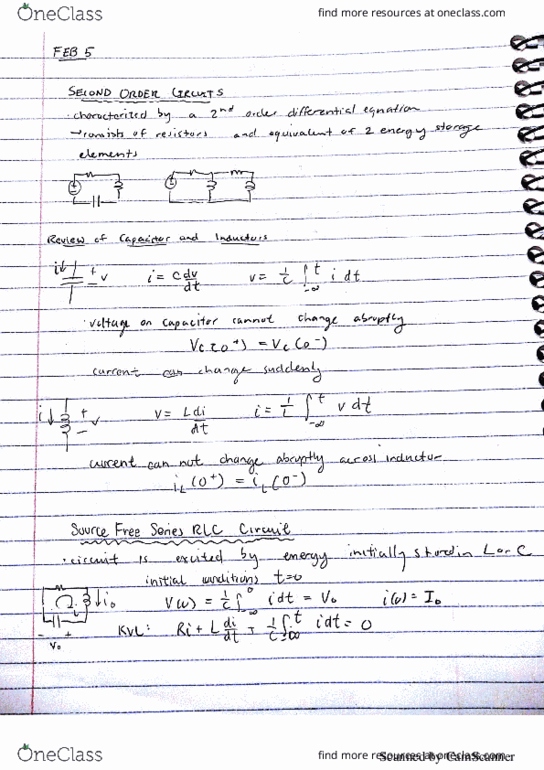 OneClass find more resources at oneclass.com
FEB 5
SECOND ORDER CIRCUITS
· characterized by a 2nd order differential equation
→ consists of resistors and equivalent of 2 energy storage
elements
Review of Capacitor and Inductors
i↓ + - v i = C dv/dt v = 1/C ∫_{-∞}^{t} i dt
· voltage on capacitor cannot change abruptly
Vc(0⁺) = Vc(0⁻)
current can change suddenly
i↓ + - v v = L di/dt i = 1/L ∫_{-∞}^{t} v dt
current can not change abruptly across inductor
i_L(0⁺) = i_L(0⁻)
Source Free Series RLC Circuit
· circuit is excited by energy initially stored in L or C
initial conditions t=0
↓i₀ V(0) = 1/C ∫_{-∞}^{0} i dt = V₀ i(0) = I₀
- + V₀ KVL: Ri + L di/dt + 1/C ∫_{-∞}^{t} i dt = 0
OneClass find more resources at oneclass.com
Scanned by CamScanner